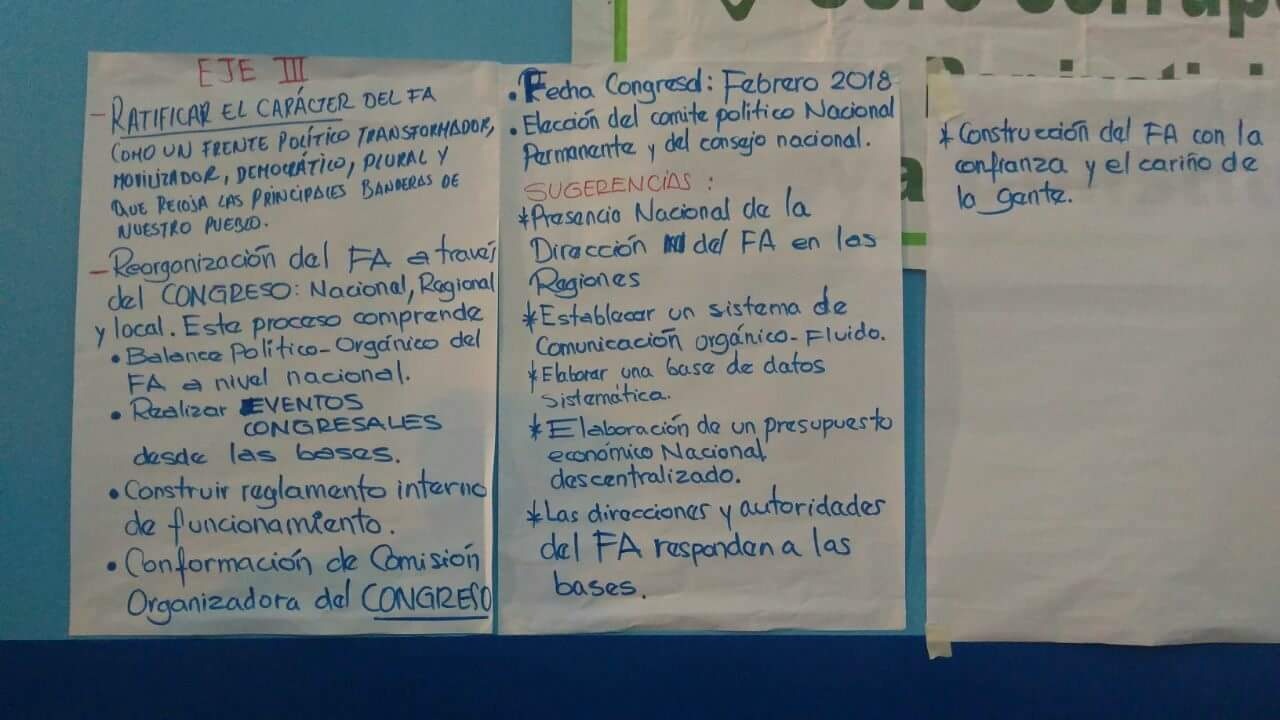 EJE III
- RATIFICAR EL CARÁCTER DEL FA
COMO UN FRENTE POLÍTICO TRANSFORMADOR,
MOVILIZADOR, DEMOCRÁTICO, PLURAL Y
QUE RECOJA LAS PRINCIPALES BANDERAS DE
NUESTRO PUEBLO.
- Reorganización del FA a través
del CONGRESO: Nacional, Regional
y local. Este proceso comprende
• Balance Político-Orgánico del
FA a nivel nacional.
• Realizar EVENTOS
CONGRESALES
desde las bases.
• Construir reglamento interno
de funcionamiento.
• Conformación de Comisión
Organizadora del CONGRESO
• Fecha Congreso: Febrero 2018
• Elección del comite politico Nacional
Permanente y del consejo nacional.
SUGERENCIAS:
* Presencia Nacional de la
Dirección del FA en las
Regiones
* Establecer un sistema de
Comunicación orgánico-Fluido.
* Elaborar una base de datos
sistemática.
* Elaboración de un presupuesto
económico Nacional
descentralizado.
* Las direcciones y autoridades
del FA responden a las
bases.
* Construcción del FA con la
confianza y el cariño de
la gente.